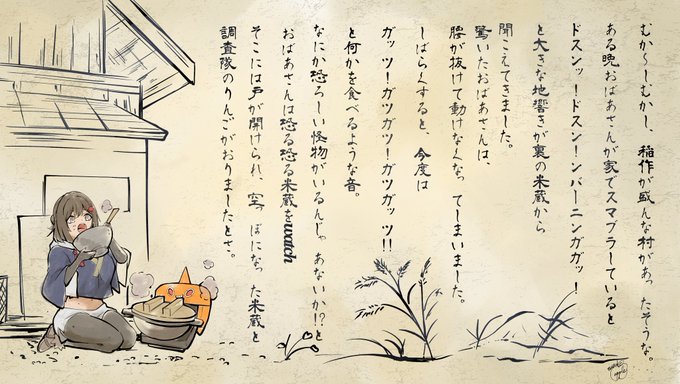 むか〜しむかし、稲作が盛んな村があったそうな。
ある晩おばあさんが家でスマブラしていると
ドスンッ！ドスン！ンバーニンガガッ！
と大きな地響きが裏の米蔵から
聞こえてきました。
驚いたおばあさんは、
腰が抜けて動けなくなってしまいました。
しばらくすると、今度は
ガッツ！ガツガツ！ガツガッツ!!
と何かを食べるような音。
なにか恐ろしい怪物がいるんじゃあないか!?と
おばあさんは恐る恐る米蔵をwatch
そこには戸が開けられ、空っぽになった米蔵と
調査隊のりんごがおりましたとさ。